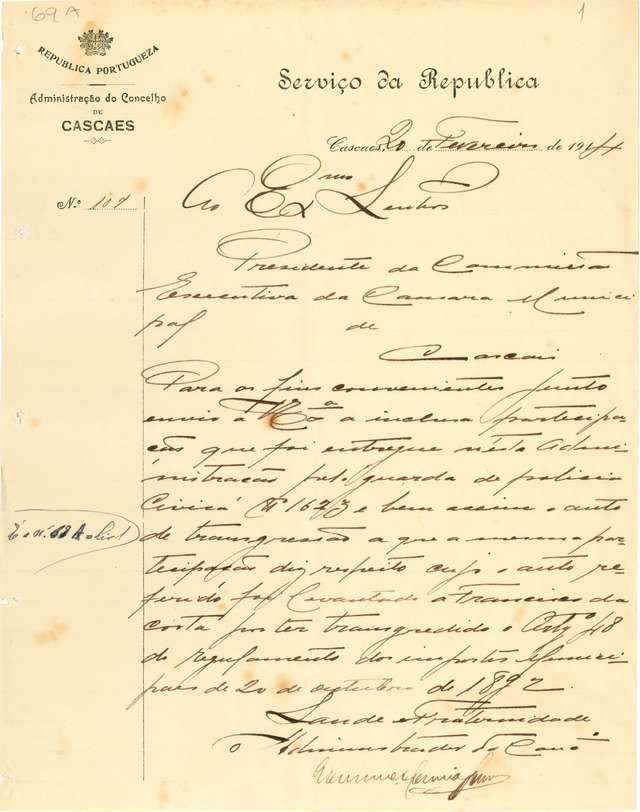 69 A
1
REPUBLICA PORTUGUEZA
Administração do Concelho
DE
CASCAES
Serviço da Republica
Cascaes, 20 de Fevereiro de 1914
N.º 104
Ao Exmo Senhor
Presidente da Commissão
Executiva da Camara Munici
pal de
Cascais
Para os fins convenientes junto
envio a V. Ex.ª a inclusa participa
ção que foi entregue nésta Admi
nistração pelo guarda de policia
Civica Nº 1673 e bem assim o auto
de transgressão a que a mesma par
ticipação diz respeito cujo auto re
ferido foi levantado a Francisco da
Costa por ter transgredido o Artº 48
do regulamento dos impostos Munici
paes de 20 de outubro de 1892.
Saude e Fraternidade
O Administrador do Concº
É o nº 69 A